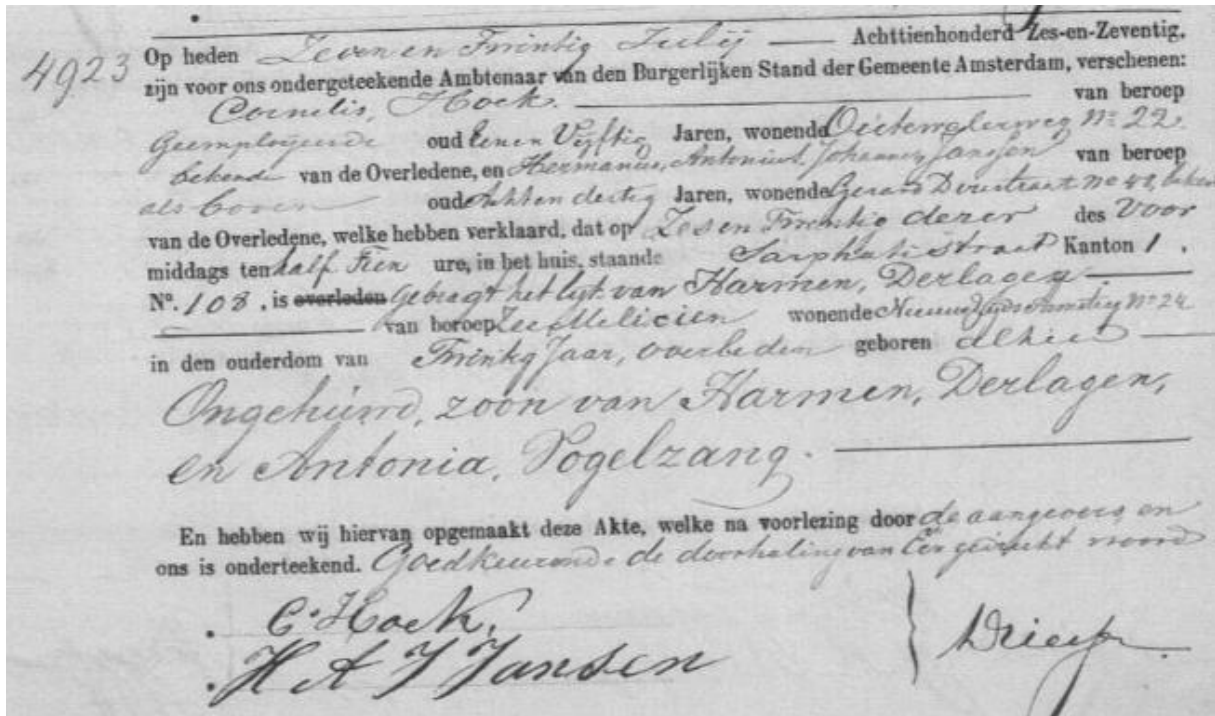 4923
Op heden Zeven en Twintig Julij Achttienhonderd Zes-en-Zeventig,
zijn voor ons ondergeteekende Ambtenaar van den Burgerlijken Stand der Gemeente Amsterdam, verschenen:
Cornelis, Hoek. van beroep
Geemployeerde oud Eenen Vijftig Jaren, wonende Oetewalerweg No 22
bekende van de Overledene, en Hermanus, Antonius, Johannes, Jansen van beroep
als boven oud Achten dertig Jaren, wonende Gerard Doustraat no 48, beken
van de Overledene, welke hebben verklaard, dat op Zes en Twintig dezer des Voor
middags ten half Tien ure, in het huis, staande Sarphatistraat Kanton 1.
No. 108, is overleden Gebragt het lijk van Harmen, Derlagen
van beroep Zee Melicien wonende No 24
in den ouderdom van Twintig Jaar, overleden geboren alhier
Ongehuwd, zoon van Harmen, Derlagen,
en Antonia, Vogelzang.
En hebben wij hiervan opgemaakt deze Akte, welke na voorlezing door de aangevers en
ons is onderteekend. Goedkeurende de doorhaling van Een gedrukt woord
C. Hoek.
H A J Jansen